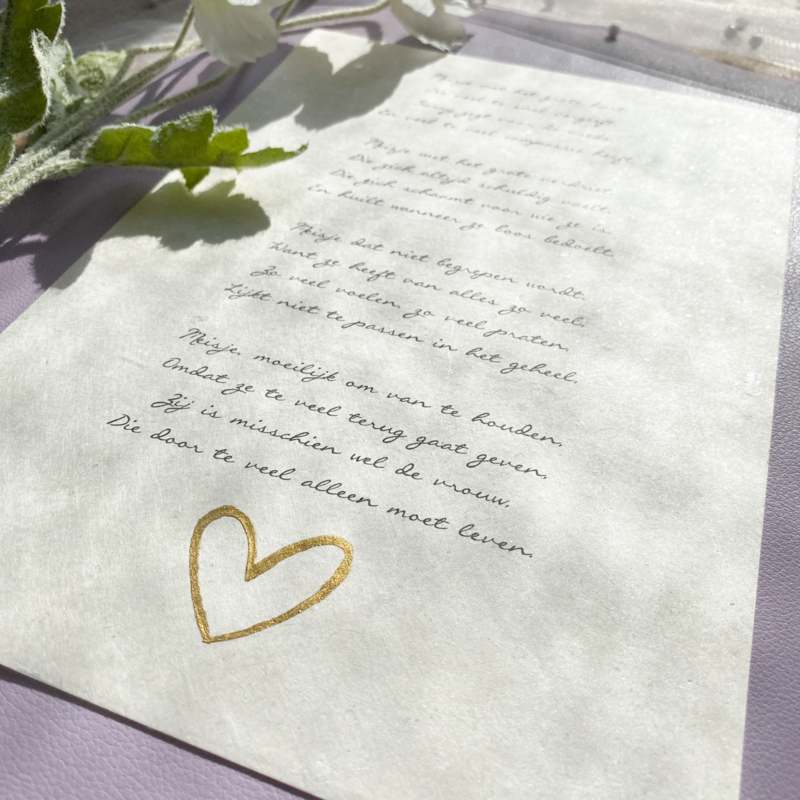 Meisje met het grote hart,
Die
En veel te veel compassie heeft.
Meisje met het grote verdriet.
Die zich altijd schuldig voelt.
Die zich schaamt voor wie ze is.
En huilt wanneer ze boos bedoelt.
Meisje dat niet begrepen wordt.
Want ze heeft van alles zo veel.
Zo veel voelen, zo veel praten,
Lijkt niet te passen in het geheel.
Meisje, moeilijk om van te houden,
Omdat ze te veel terug gaat geven,
Zij is misschien wel de vrouw,
Die door te veel alleen moet leven.